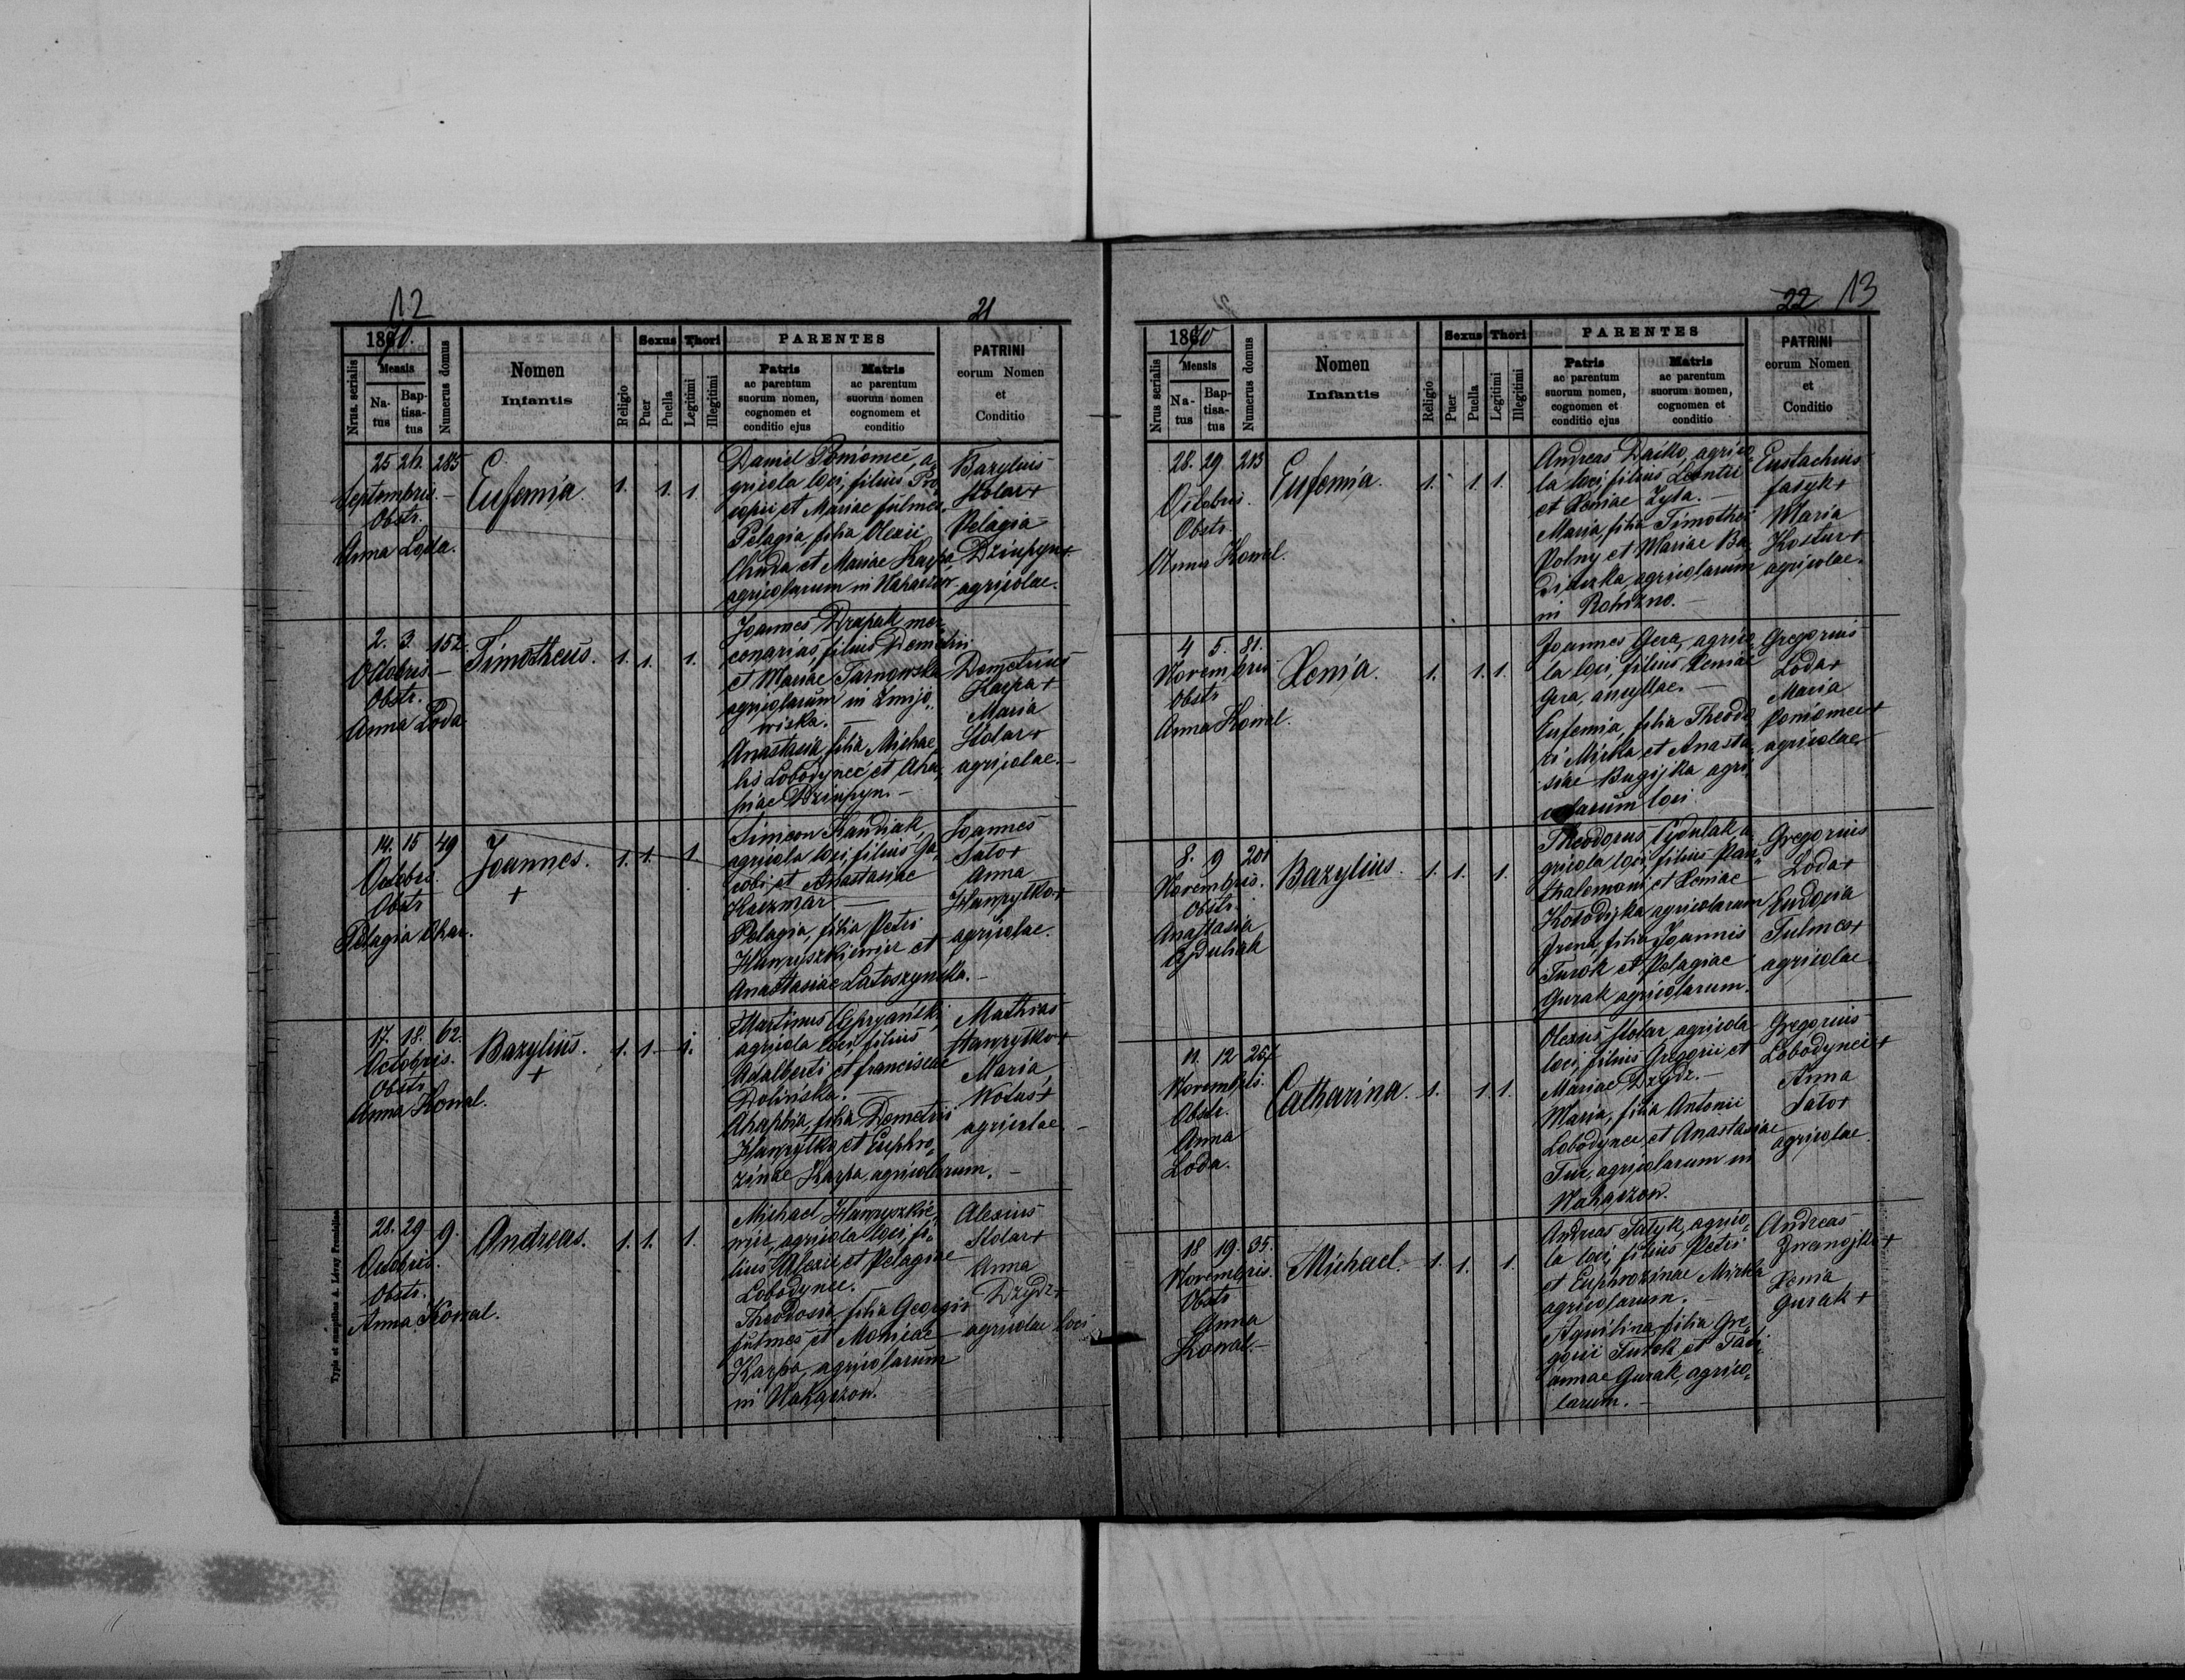 12
21
1870.
Nrus. serialis
Mensis
Na-
tus
Bap-
tisa-
tus
Numerus domus
Nomen
Infantis
Religio
Sexus
Puer
Puella
Thori
Legitimi
Illegitimi
PARENTES
Patris
ac parentum
suorum nomen,
cognomen et
conditio ejus
Matris
ac parentum
suorum nomen
cognomem et
conditio
PATRINI
eorum Nomen
et
Conditio
25 26. 285
Septembris.
Obstr.
Anna Loda.
Eufemia
1. 1. 1.
Daniel Poniomeć, a,
gricola loci, filius Pro,
copii et Mariae fulmes.
Pelagia, filia Olexii
Chuda et Mariae Karpa,
agricolarum in
Bazylius
Stolar +
Pelagia
Dziupyn +
agricolae.
2. 3. 152.
Octobris
Obstr.
Anna Loda
Timotheus.
1. 1. 1.
Joannes Drapak mer,
cenarias, filius Demetrii
et Mariae Tarnowska
agricolarum in Zmijo,
wiska.
Anastasia, filia Michae,
lis Lobodyneć et Aha,
phiae Dziupyn.
Demetrius
Karpa +
Maria
Stolar +
agricolae.
14. 15 49
Octobris.
Obstr
Pelagia
Joannes.
+
1. 1. 1.
Simeon Handiak,
agricola loci, filius Ja,
cobi, et Anastasiae
Kaczmar
Pelagia, filia Petri
Hawryszkiewicz et
Anastasiae Latoszynska.
Joannes
Sato +
Anna
Hawrytko +
agricolae.
17. 18. 62.
Octobris.
Obstr
Anna Kowal.
Bazylius.
+
1. 1. 1.
Martinus
agricola loci, filius
Adalberti et franciscae
Dolińska.
Ahaphia, filia Demetrii
Hawrytko, et Euphro,
zinae Karpa, agricolarum.
Mathias
Hawrytko +
Maria
Kotus +
agricolae
28. 29 9.
Octobris.
Obstr.
Anna Kowal.
Andreas.
1. 1. 1.
Michael Hawryszkie,
wicz, agricola loci, fi,
lius Alexii et Pelagiae
Lobodynec.
Theodosia, filia Georgii
fulmes et Moniae
Karpa, agricolarum
in
Alexius
Stolar +
Anna
Dzydz +
agricolae loci
Typis et sumptibus A. Lévay Premisliae
22 13
1870
Nrus serialis
Mensis
Na-
tus
Bap-
tisa-
tus
Numerus domus
Nomen
Infantis
Religio
Sexus
Puer
Puella
Thori
Legitimi
Illegitimi
PARENTES
Patris
ac parentum
suorum nomen,
cognomen et
conditio ejus
Matris
ac parentum
suorum nomen,
cognomen et
conditio
PATRINI
eorum Nomen
et
Conditio
28. 29. 213
Octobris.
Obstr.
Anna Kowal.
Eufemia.
1. 1. 1.
Andreas Daćko, agrico,
la loci, filius Leontii
et Xeniae Zyta.
Maria, filia Timothei
Polny et Mariae Ba,
agricolarum
in
Eustachius
fasyk +
Maria
Kostur +
agricolae.
4 5. 81.
Novembris
Obstr
Anna Kowal.
Xenia.
1. 1. 1.
Joannes Gera, agrico,
la loci, filius Xeniae
Gera, ancyllae.
Eufemia, filia Theodo
ri Mirka et Anasta,
siae Bugijka agri,
colarum loci.
Gregorius
Loda +
Maria
Poniomeć +
agricolae
8. 9 201
Novembris.
Obstr.
Anastasia
Cydulak
Bazylius.
1. 1. 1.
Theodorus Cydulak a,
gricola loci, filius Pan,
thalemoni, et Xeniae
Kołodijka agricolarum
Irena, filia Joannis
Turok et Pelagiae
Gurak agricolarum.
Gregorius
Loda +
Eudocia
Fulmes +
agricolae
11. 12 257
Novembris.
Obstr.
Anna
Loda.
Catharina.
1. 1. 1.
Olexius Stolar, agricola
loci, filius Gregorii, et
Mariae Dzydz.
Maria, filia Antonii
Lobodynec, et Anastasiae
Tur, agricolarum in
Gregorius
Lobodyneć +
Anna
Sato +
agricolae.
18 19. 35.
Novembris.
Obstr
Anna
Kowal.
Michael.
1. 1. 1.
Andreas Tatyk, agrico,
la loci, filius Petri
et Euphrozinae Mirka
agricolarum.
Aquilina, filia Gre,
gorii Turok, et Tati,
annae Gurak, agrico,
larum.
Andreas
+
Xenia
Gurak +